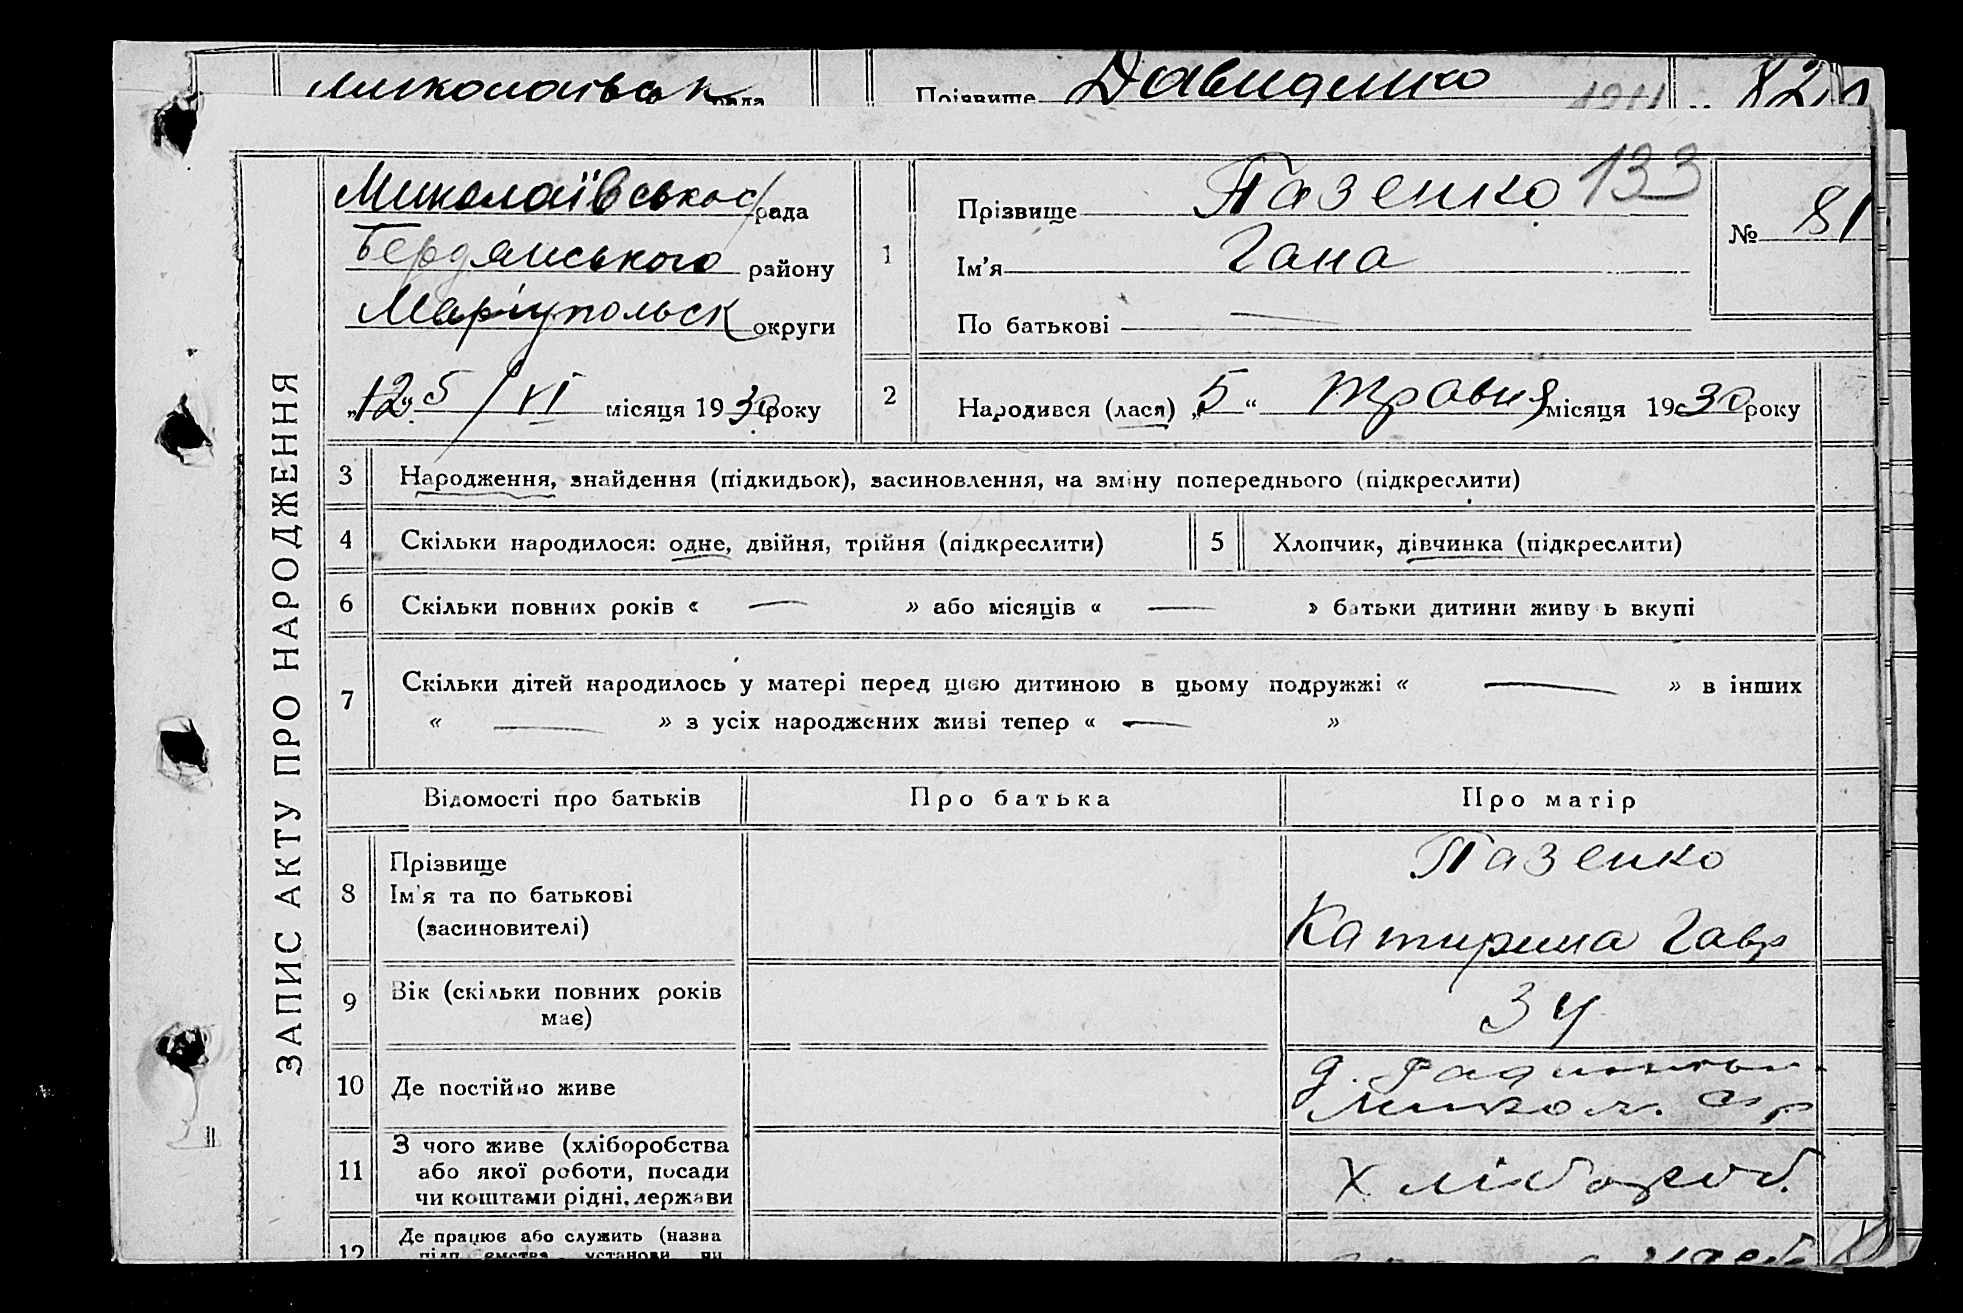 Миколаївськ рада
Прізвище Давиденко
82
ЗАПИС АКТУ ПРО НАРОДЖЕННЯ
Миколаївською рада
Бердянського району
Маріупольск округи
133
№ 81
1
Прізвище Пазенко
Ім'я Гана
По батькові —
„12„ 5/VI місяця 1930 року
2 Народився (лася) „5“ травня місяця 1930 року
3 Народження, знайдення (підкидьок), засиновлення, на зміну попереднього (підкреслити)
4 Скільки народилося: одне, двійня, трійня (підкреслити)
5 Хлопчик, дівчинка (підкреслити)
6 Скільки повних років « — » або місяців « — » батьки дитини живуть вкупі
7 Скільки дітей народилось у матері перед цією дитиною в цьому подружжі « — » в інших
« — » з усіх народжених живі тепер « — »
Відомості про батьків Про батька Про матір
8 Прізвище
Ім'я та по батькові
(засиновителі)
Пазенко
Катирина Гавр
9 Вік (скільки повних років
має)
34
10 Де постійно живе
Микол. с/р
11 З чого живе (хліборобства
або якої роботи, посади
чи коштами рідні, держави
Хлібороб.
12 Де працює або служить (назва